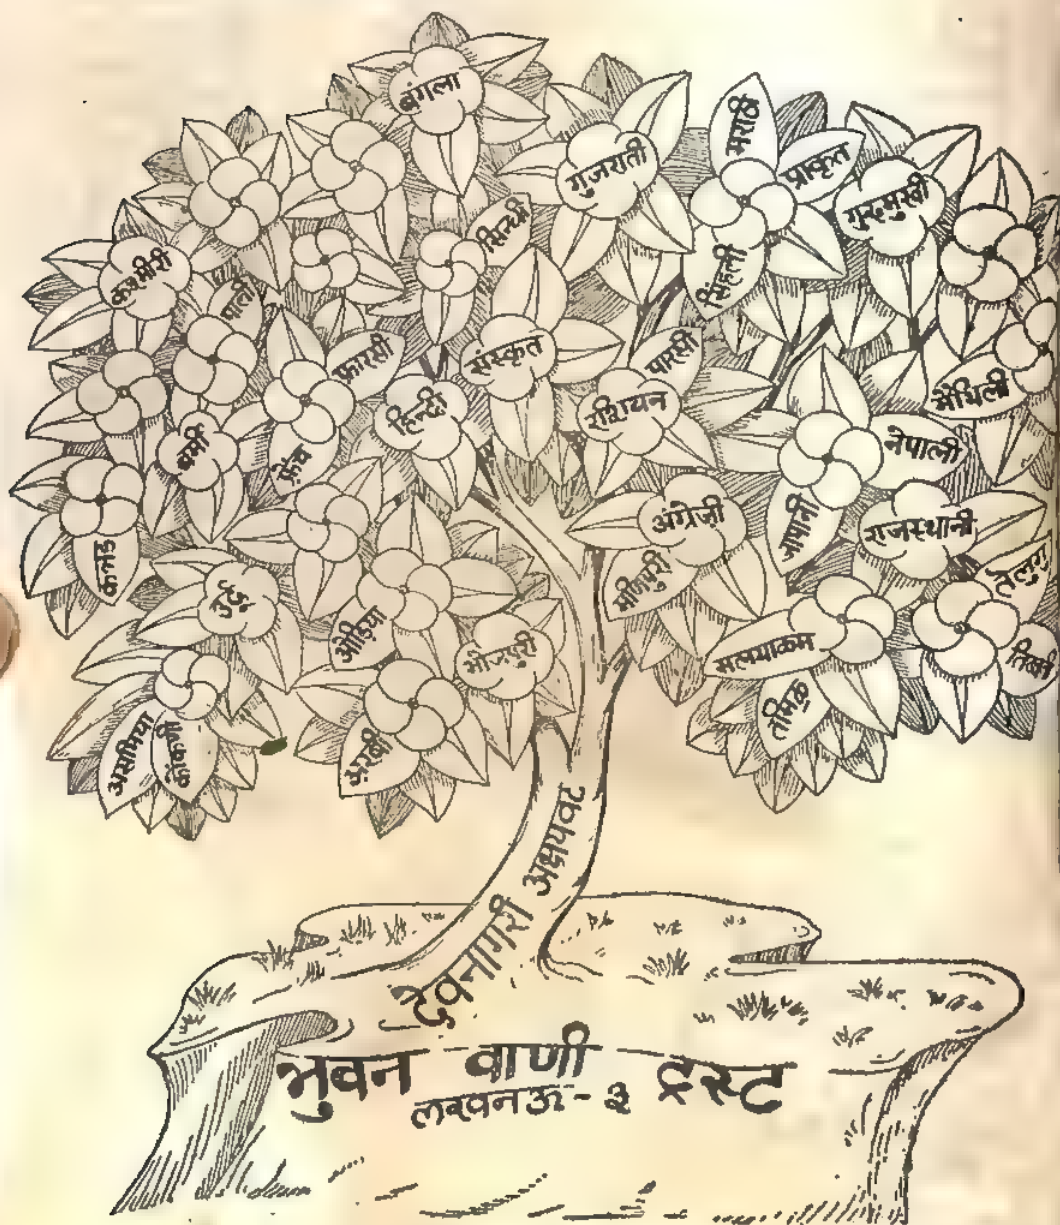 बंगला
मराठी
प्राकृत
गुजराती
गुरुमुखी
सिन्धी
सिंहली
कश्मीरी
पाली
फ़ारसी
संस्कृत
पारसी
मैथिली
हिन्दी
रशियन
नेपाली
बर्मी
फ़्रेंच
अंग्रेज़ी
जापानी
राजस्थानी
कन्नड
उर्दू
ओड़िया
मणिपुरी
तेलुगु
भोजपुरी
मलयाळम
तिब्बती
तमिळ
असमिया
कोंकणी
अरबी
देवनागरी अक्षयवट
भुवन वाणी ट्रस्ट
लखनऊ-३